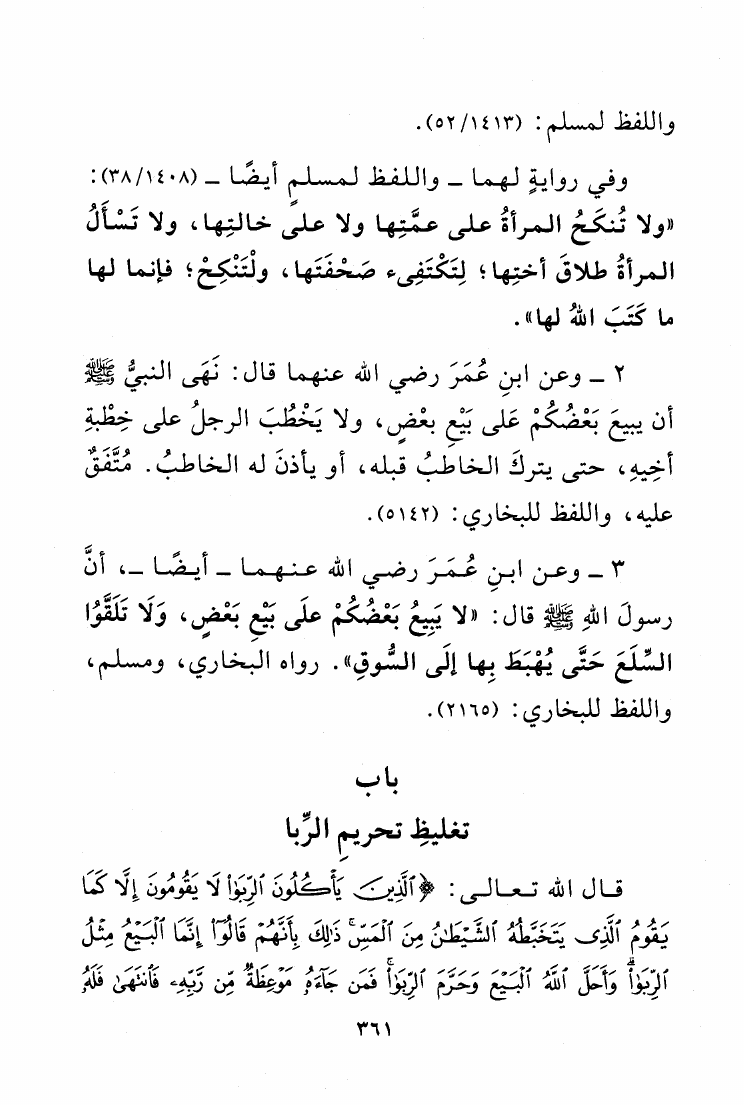 واللفظ لمسلم: (٥٢/١٤١٣).
وفي روايةٍ لهما ـ واللفظ لمسلمٍ أيضًا ـ (٣٨/١٤٠٨):
«ولا تُنكَحُ المرأةُ على عمَّتِها ولا على خالتِها، ولا تَسْأَلُ
المرأةُ طلاقَ أختِها؛ لِتَكْتَفِىء صَحْفَتَها، ولْتَنْكِحْ؛ فإنما لها
ما كَتَبَ اللهُ لها».
٢ ـ وعن ابنِ عُمَرَ رضي الله عنهما قال: نَهَى النبيُّ ﷺ
أن يبيعَ بَعْضُكُمْ عَلى بَيْعِ بعْضٍ، ولا يَخْطُبَ الرجلُ على خِطْبةِ
أخِيهِ، حتى يتركَ الخاطبُ قبله، أو يأذنَ له الخاطبُ. مُتَّفَقٌ
عليه، واللفظ للبخاري: (٥١٤٢).
٣ ـ وعن ابنِ عُمَرَ رضي الله عنهما ـ أيضًا ـ، أنَّ
رسولَ اللهِ ﷺ قال: «لا يَبِيعُ بَعْضُكُمْ علَى بَيْعِ بَعْضٍ، وَلَا تَلَقَّوُا
السِّلَعَ حَتَّى يُهْبَطَ بِها إلَى السُّوقِ». رواه البخاري، ومسلم،
واللفظ للبخاري: (٢١٦٥).
باب
تغليظِ تحريمِ الرِّبا
قال الله تعالى: ﴿ٱلَّذِينَ يَأْكُلُونَ ٱلرِّبَوٰا۟ لَا يَقُومُونَ إِلَّا كَمَا
يَقُومُ ٱلَّذِى يَتَخَبَّطُهُ ٱلشَّيْطَـٰنُ مِنَ ٱلْمَسِّ ۚ ذَٰلِكَ بِأَنَّهُمْ قَالُوٓا۟ إِنَّمَا ٱلْبَيْعُ مِثْلُ
ٱلرِّبَوٰا۟ ۗ وَأَحَلَّ ٱللَّهُ ٱلْبَيْعَ وَحَرَّمَ ٱلرِّبَوٰا۟ ۚ فَمَن جَآءَهُۥ مَوْعِظَةٌ مِّن رَّبِّهِۦ فَٱنتَهَىٰ فَلَهُۥ
٣٦١